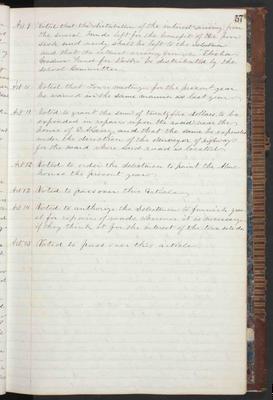 57
Art 9 Voted that the distribution of the interest arising from
the several funds left for the benefit of the poor
sick and needy shall be left to the selectmen
and that the interest arising from the
Goodnow Fund for Books be distributed by the
School Committee
Art 10 Voted that Town meetings for the present year
be warned in the same manner as last year
Art 11 Voted to grant the sum of twenty five dollars to be
expended in repairs upon the road near the
house of and that the same be expended
under the direction of the surveyor of highways
for the ward where said road is located
Art 12 Voted to order the selectmen to paint the Alms
house the present year
Art 13 Voted to pass over this article
Art 14 Voted to authorize the Selectmen to furnish
for repairs of roads whenever it is necessary
if they think it for the interest of the town to do so
Art 15 Voted to pass over this article